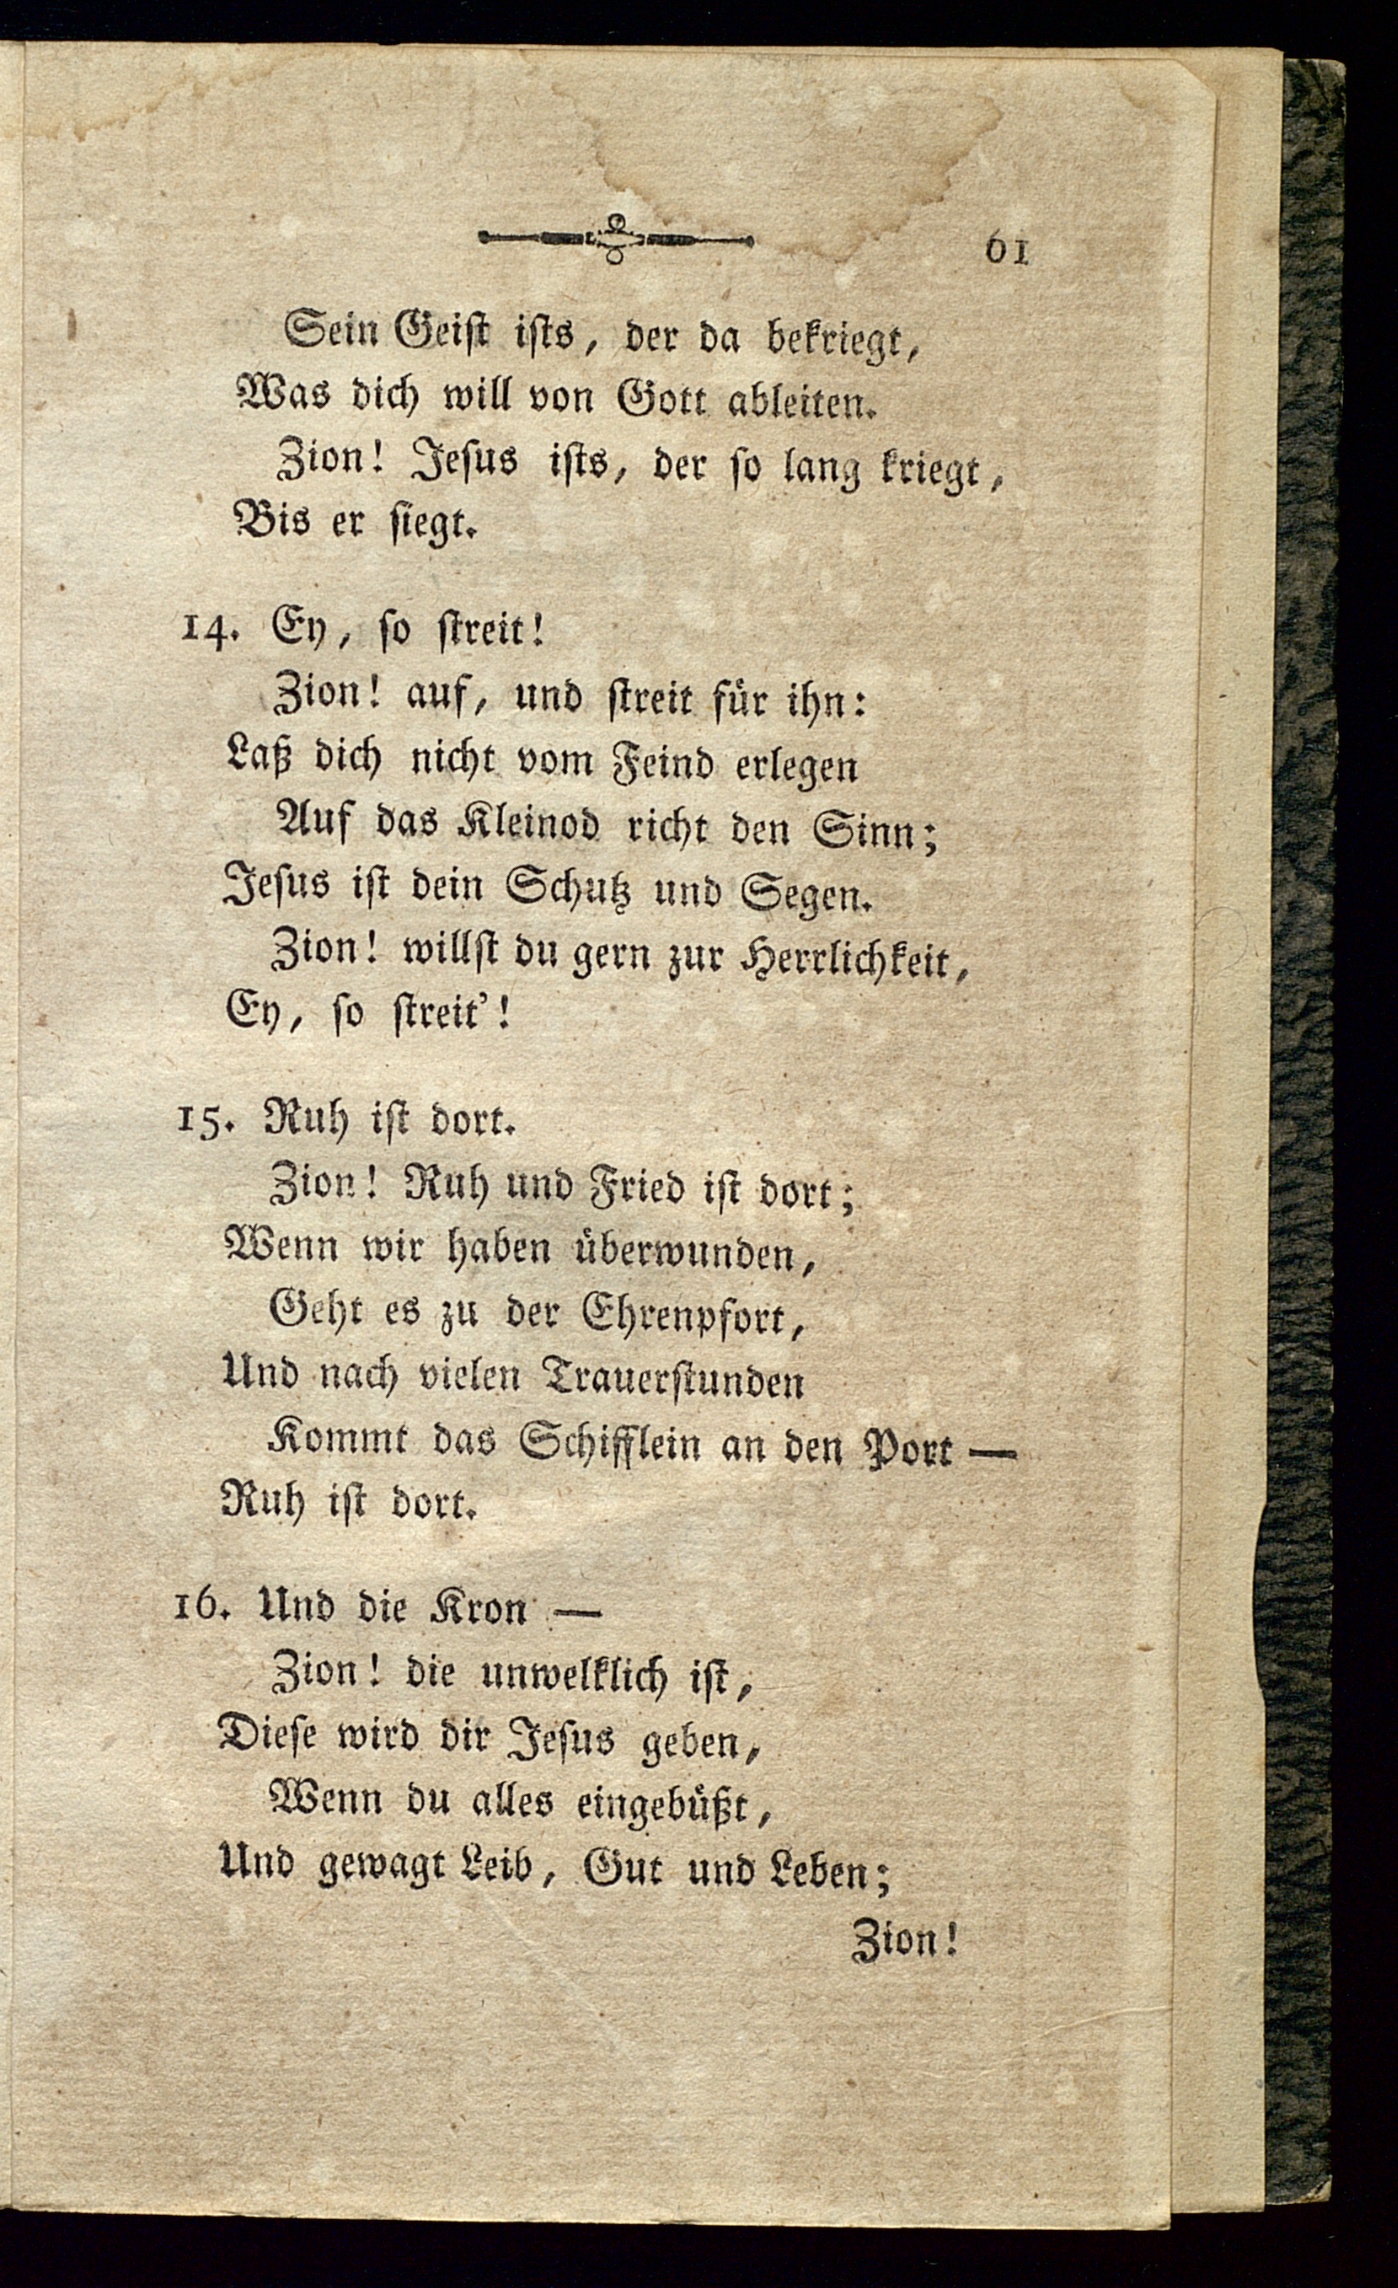 61
Sein Geiſt iſts, der da bekriegt,
Was dich will von Gott ableiten.
Zion! Jeſus iſts, der ſo lang kriegt,
Bis er ſiegt.
14. Ey, ſo ſtreit!
Zion! auf, und ſtreit für ihn:
Laß dich nicht vom Feind erlegen
Auf das Kleinod richt den Sinn;
Jeſus iſt dein Schutz und Segen.
Zion! willſt du gern zur Herrlichkeit,
Ey, ſo ſtreit'!
15. Ruh iſt dort.
Zion! Ruh und Fried iſt dort;
Wenn wir haben überwunden,
Geht es zu der Ehrenpfort,
Und nach vielen Trauerſtunden
Kommt das Schifflein an den Port —
Ruh iſt dort.
16. Und die Kron —
Zion! die unwelklich iſt,
Dieſe wird dir Jeſus geben,
Wenn du alles eingebüßt,
Und gewagt Leib, Gut und Leben;
Zion!